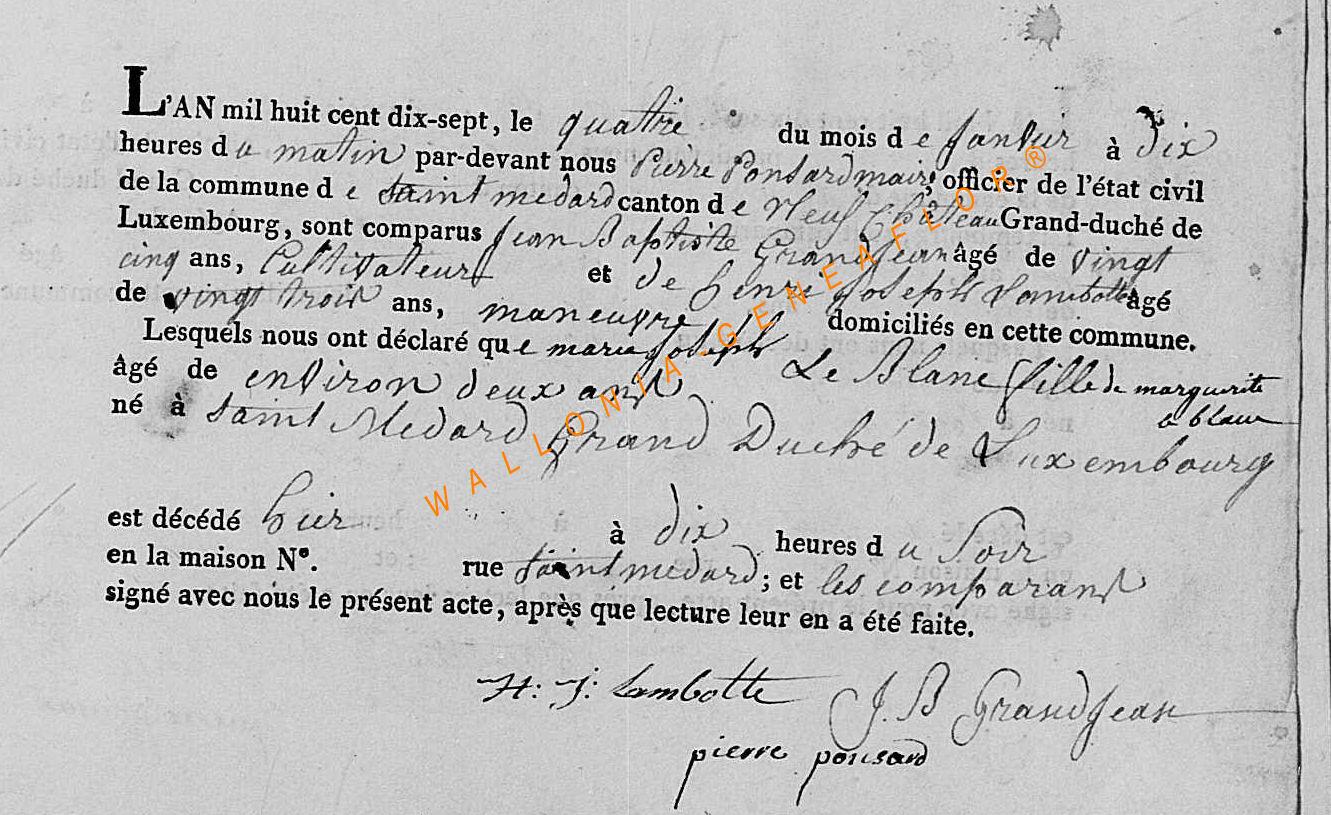 L'AN mil huit cent dix-sept, le quattre du mois de Janvier à dix
heures du matin par-devant nous Pierre Ponsard maire, officier de l'état civil
de la commune de Saint medard canton de Neuf Château Grand-duché de
Luxembourg, sont comparus Jean Baptiste Grandjean âgé de vingt
cinq ans, Cultivateur et de henri Joseph Lambotte âgé
de vingt trois ans, maneuvre domiciliés en cette commune.
Lesquels nous ont déclaré que marie Joseph Le Blanc fille de marguerite
le blanc
âgé de environ deux ans
né à Saint Medard Grand Duché de Luxembourg
est décédé hier à dix heures du Soir
en la maison N°. rue Saint medard; et les comparant
signé avec nous le présent acte, après que lecture leur en a été faite.
H: J: Lambotte J. B Grandjean
pierre ponsard
WALLONIA-GENEAFLOR®